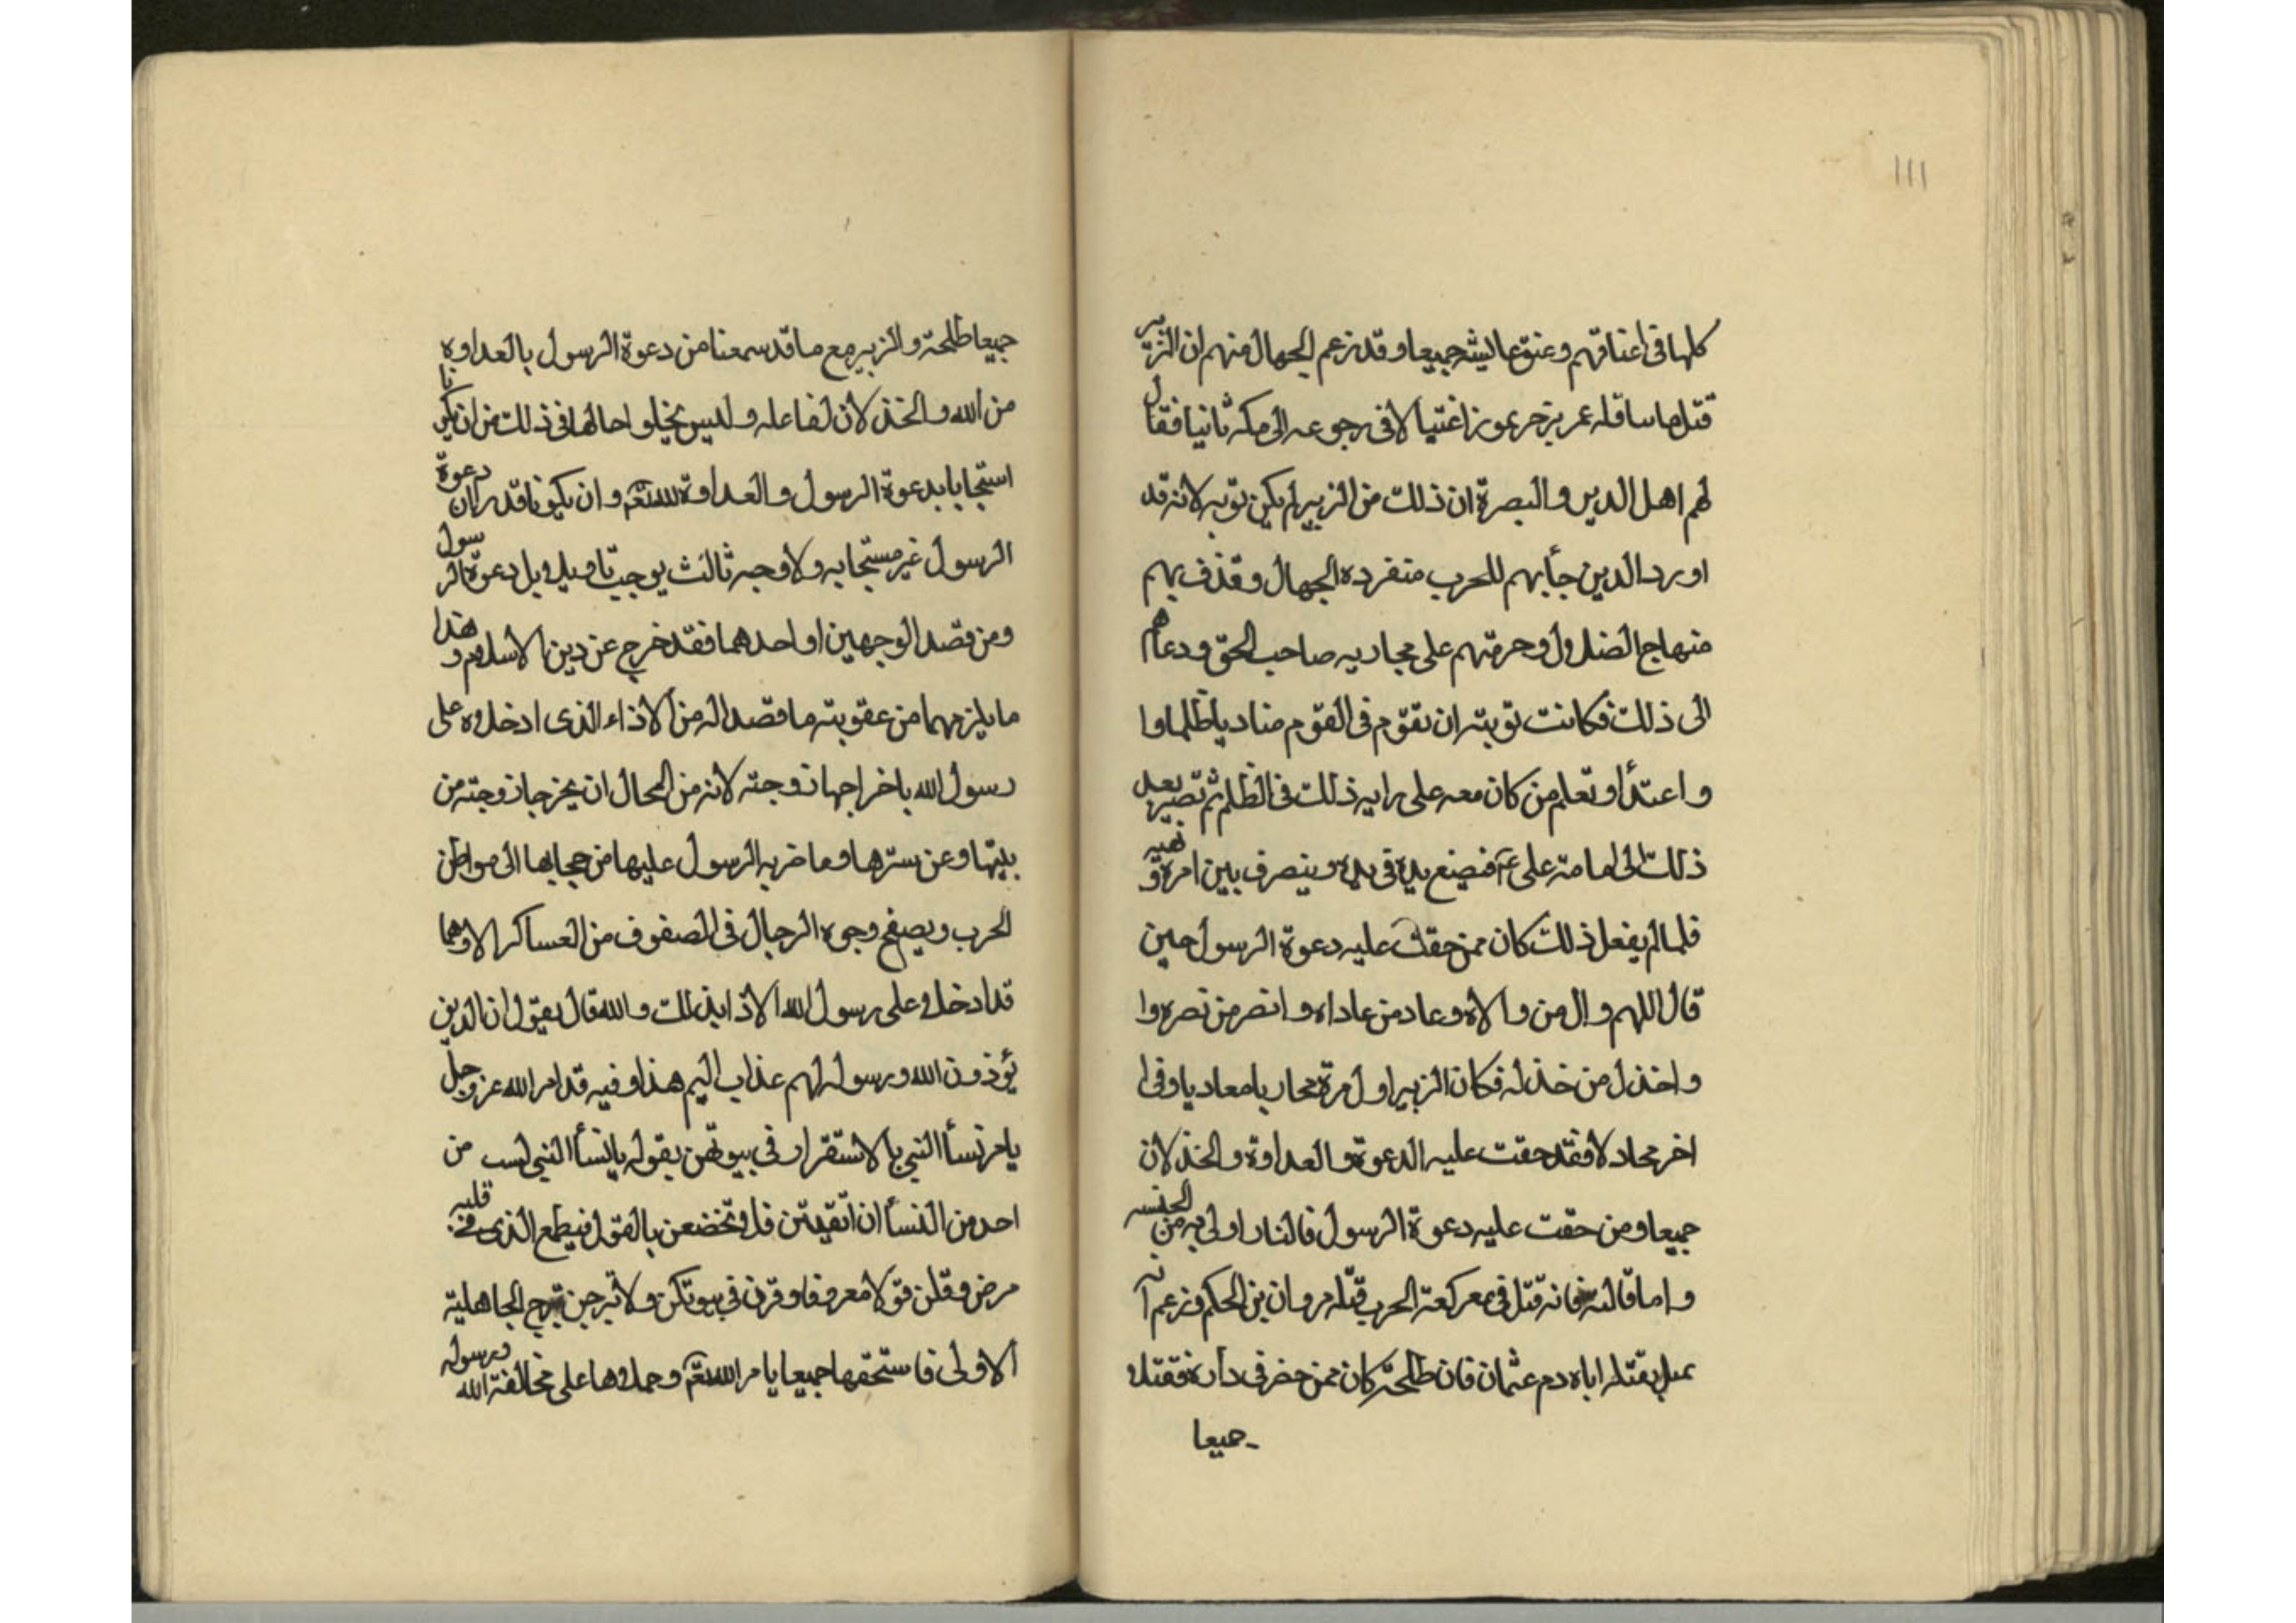 ١١١
كلها فى اعناقهم وعنق عايشه جميعا وقد زعم الجهال منهم ان الزبير
قتل عمر بن جرموز اغتيالا فى رجوعه الى مكه ثانيا فقال
لهم اهل الدين والبصرة ان ذلك من الزبير لم يكن توبه لانه قد
اورد الذين جأ بهم للحرب متفرده الجهال وقذف بهم
منهاج الضلال وحرمهم على محاربه صاحب الحق ودعاهم
الى ذلك فكانت توبته ان يقوم فى القوم مناديا ظلما وا
واعتدأ وتعلم من كان معه على رايه ذلك فى الظلم ثم تصير بعد
ذلك الى امامة على ع فيضع يده فى يده وينصرف بين امره ونهيه
فلما لم يفعل ذلك كان ممن حقت عليه دعوة الرسول حين
قال اللهم وال من والاه وعاد من عاداه وانصر من نصره وا
واخذل من خذله فكان الزبير اول مرة محاربا معاديا وفى ا
اخر محادلا فقد حقت عليه الدعوة والعداوة والخذلان
جميعا ومن حقت عليه دعوة الرسول فالنار اولى به من الجنسه
واما فانه قتل فى معركعة الحرب قتله مروان بن الحكم وزعم انه
بقتله اياه دم عثمان فان طلحة كان ممن حضر فى داره فقتلا
جميعا
جميعا طلحة والزبير مع ما قد سمعنا من دعوة الرسول بالعداوه
من الله والخذلان لفاعله وليس يخلوا حالها فى ذلك من ان يكونا
استجابا بدعوة الرسول والعداوة لله تعم وان يكونا قد ران دعوة
الرسول غير مستجابه ولا وجه ثالث يوجب تاويل دعوة الرسول
ومن قصد الوجهين او احدهما فقد خرج عن دين الاسلام وهذا
ما يلزمهما من عقوبته ما قصدا له من الاذاء الذى ادخلاه على
رسول الله باخراجها زوجته لانه من المحال ان يخرجا زوجته من
بيتها وعن سترها وما ضربه الرسول عليها من حجابها الى مواطن
الحرب ويصفح وجوه الرجال فى الصفوف من العساكر الا وهما
قد ادخلا على رسول الله الاذا بذلك والله قال يقول ان الذين
يؤذون الله ورسوله لهم عذاب اليم هذا وفيه قد امر الله عز وجل
يامر نسأ النبى بالاستقرار فى بيوتهن بقوله يا نسأ النبى لست من
احد من النسأ ان اتقيتن فلا تخضعن بالقول فيطمع الذى فى قلبه
مرض وقلن قولا معروفا وقرن فى بيوتكن ولا تبرجن تبرج الجاهلية
الاولى فاستحقها جميعا يامر الله تعم وحملاها على مخالفة الله ورسوله